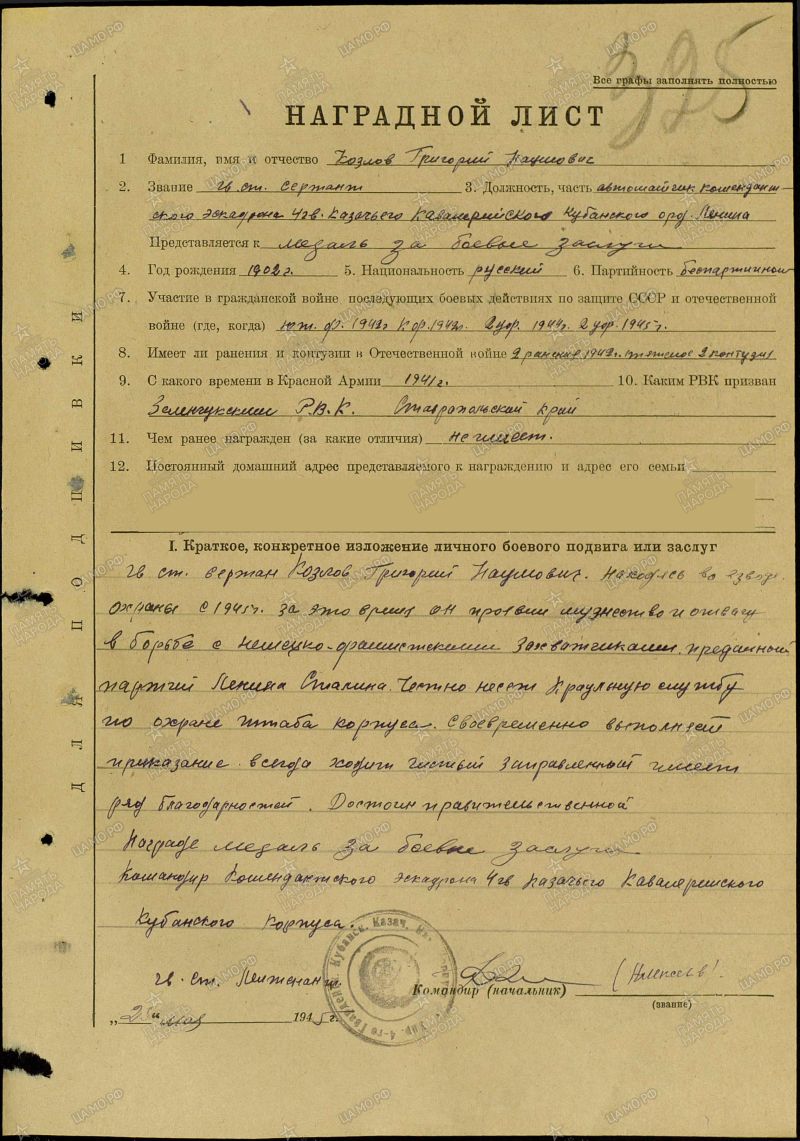 325
Все графы заполнять полностью
НАГРАДНОЙ ЛИСТ
1 Фамилия, имя и отчество Козлов Григорий Наумович
2. Звание гв ст. сержант 3. Должность, часть автоматчик комендант-
ского эскадрона 4 гв. Казачьего Кавалерийского Кубанского орд. Ленина
Представляется к медаль за боевые заслуги
4. Год рождения 1902 г. 5. Национальность русский 6. Партийность беспартийный
7. Участие в гражданской войне, последующих боевых действиях по защите СССР и отечественной
войне (где, когда) юж. ф. 1942г 2 укр. 1944. 2 укр. 1945 г.
8. Имеет ли ранения и контузии в Отечественной войне 2 ранения 1942г. тяжелое 2 контузии
9. С какого времени в Красной Армии 1941 г. 10. Каким РВК призван
Зеленчукским Р.В.К. Ставропольский край
11. Чем ранее награжден (за какие отличия) не имеет.
12. Постоянный домашний адрес представляемого к награждению и адрес его семьи
I. Краткое, конкретное изложение личного боевого подвига или заслуг
гв ст. сержан Козлов Григорий Наумович. Находясь во взводе
охраны с 1945г. за это время он проявил мужество и отвагу
в борьбе с немецко-фашистскими захватчиками. преданной
партии Ленина Сталина. Честно несет караульную службу
по охране штаба корпуса. Своевременно выполняет
приказание. всегда ходит чистый заправленный имеет
ряд благодарностей. Достоин правительственной
Награде медаль за боевые заслуги
Командир Комендантского эскадрона 4 гв Казачьего Кавалерийского
Кубанского корпуса.
гв. ст. Лейтенант (Алексеев)
Командир (начальник)
(звание)
„25“ мая 1945 г.
ДЛЯ ПОДШИВКИ
Кубанск. Казач.
4-го Гвардейск.
ПАМЯТЬ НАРОДА
ЦАМО.РФ